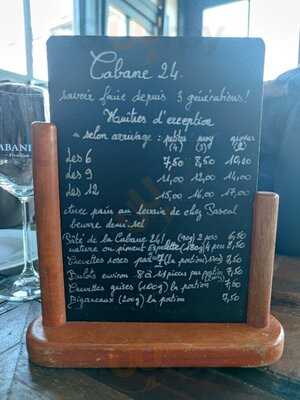 Cabane 24.
savoir faire depuis 3 générations!
Huîtres d'exception
selon arrivage : petites moy grosses
(4) (3) (2)
les 6 7,50 8,50 10,00
les 9 11,00 12,00 14,00
les 12 15,00 16,00 17,00
Avec pain au levain de chez Pascal
beurre demi-sel
Pâté de la Cabane 24! (180g) 2 pers 6,50
nature ou piment Espelette (180g) 4 pers 8,50
Crevettes roses par 7 (la portion) 7,50
Bulots environ 8 à 11 pièces par portion 7,50
Crevettes grises (100g) la portion 7,50
Bigorneaux (200g) la portion 7,50
CABANE